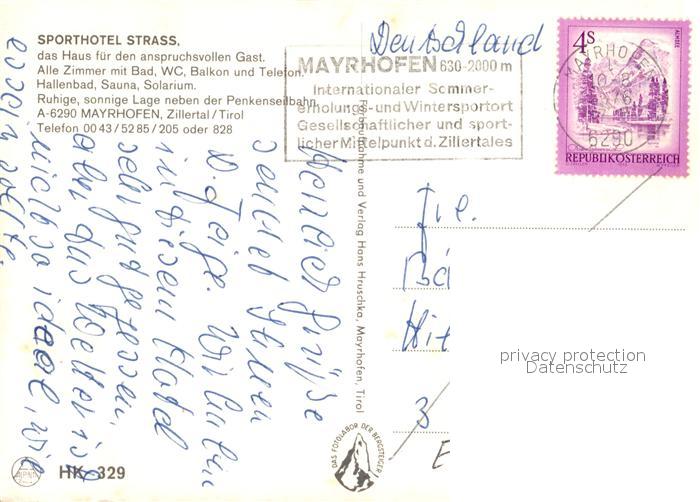 SPORTHOTEL STRASS,
das Haus für den anspruchsvollen Gast.
Alle Zimmer mit Bad, WC, Balkon und Telefon,
Hallenbad, Sauna, Solarium.
Ruhige, sonnige Lage neben der Penkenseilbahn
A-6290 MAYRHOFEN, Zillertal/Tirol
Telefon 00 43/52 85/205 oder 828
Deutschland
MAYRHOFEN 630-2000 m
Internationaler Sommer-
erholungs- und Wintersportort
Gesellschaftlicher und sport-
licher Mittelpunkt d. Zillertales
MAYRHOFEN
6290
4s
ALMSEE
REPUBLIK ÖSTERREICH
Grüße
sendet Ihnen
Wir haben
in diesem Hotel
sehr gut gegessen,
aber das Wetter ist
nicht so ideal, wie
es sein sollte.
Farbaufnahme und Verlag Hans Hruschka, Mayrhofen, Tirol
Bä
Hit
3
privacy protection
Datenschutz
DAS FOTOLABOR DER BERGSTEIGER
ALPNA
HK 329